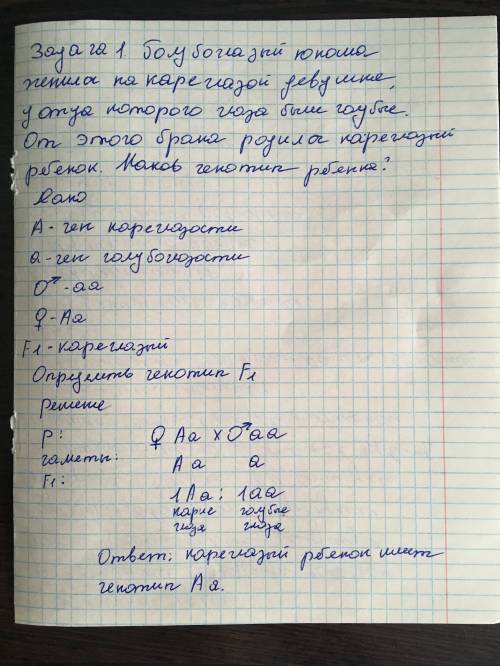 Задача 1. Голубоглазый юноша
женился на кареглазой девушке,
у отца которого глаза были голубые.
От этого брака родился кареглазый
ребенок. Каков генотип ребенка?
Дано
А - ген кареглазости
а - ген голубоглазости
♂ - аа
♀ - Аа
F1 - кареглазый
Определить генотип F1
Решение
Р: ♀ Аа х ♂ аа
гаметы: А а а
F1:
1Аа : 1аа
карие голубые
глаза глаза
Ответ: кареглазый ребенок имеет
генотип Аа.